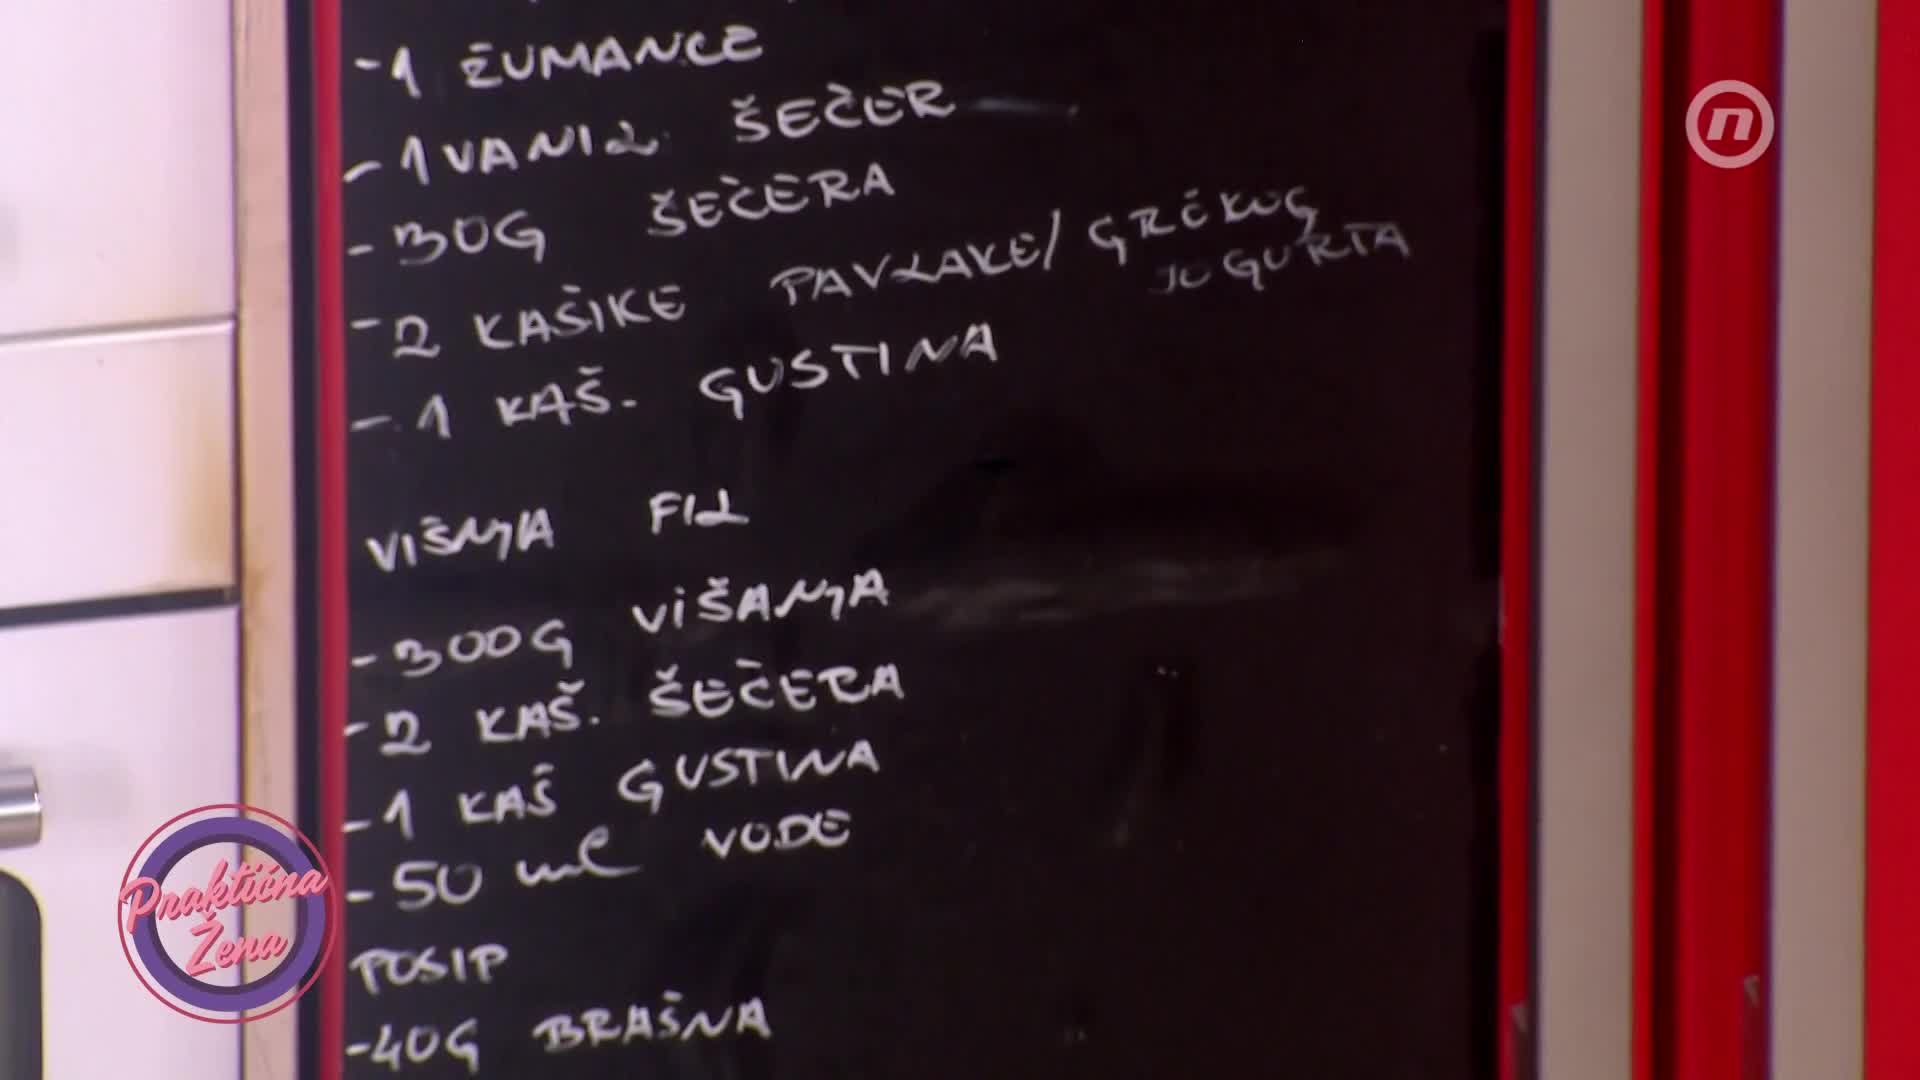 -1 ŽUMANCE
-1 VANIL. ŠEČER
-30G ŠEČERA
-2 KAŠIKE PAVLAKE/ GRČKOG
JOGURTA
-1 KAŠ. GUSTINA
VIŠNJA FIL
-300G VIŠANJA
-2 KAŠ. ŠEČERA
-1 KAŠ GUSTINA
-50 ml VODE
POSIP
-40G BRAŠNA
Praktična
Žena
n